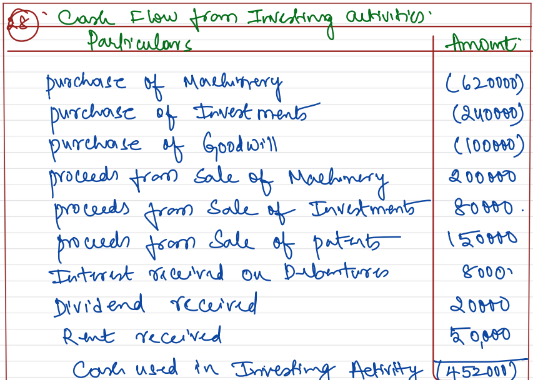 28. Cash Flow from Investing activities.
Particulars Amount
purchase of Machinery (620000)
purchase of Investments (240000)
purchase of Goodwill (100000)
proceeds from Sale of Machinery 200000
proceeds from Sale of Investments 80000.
proceeds from Sale of patents 150000
Interest received on Debentures 8000.
Dividend received 20000
Rent received 50,000
Cash used in Investing Activity (452000)